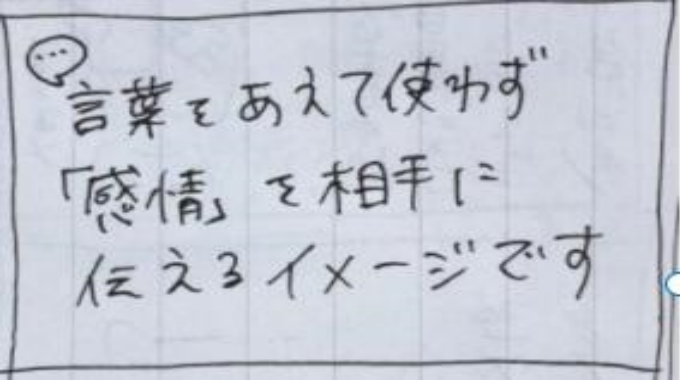 言葉をあえて使わず
「感情」を相手に
伝えるイメージです